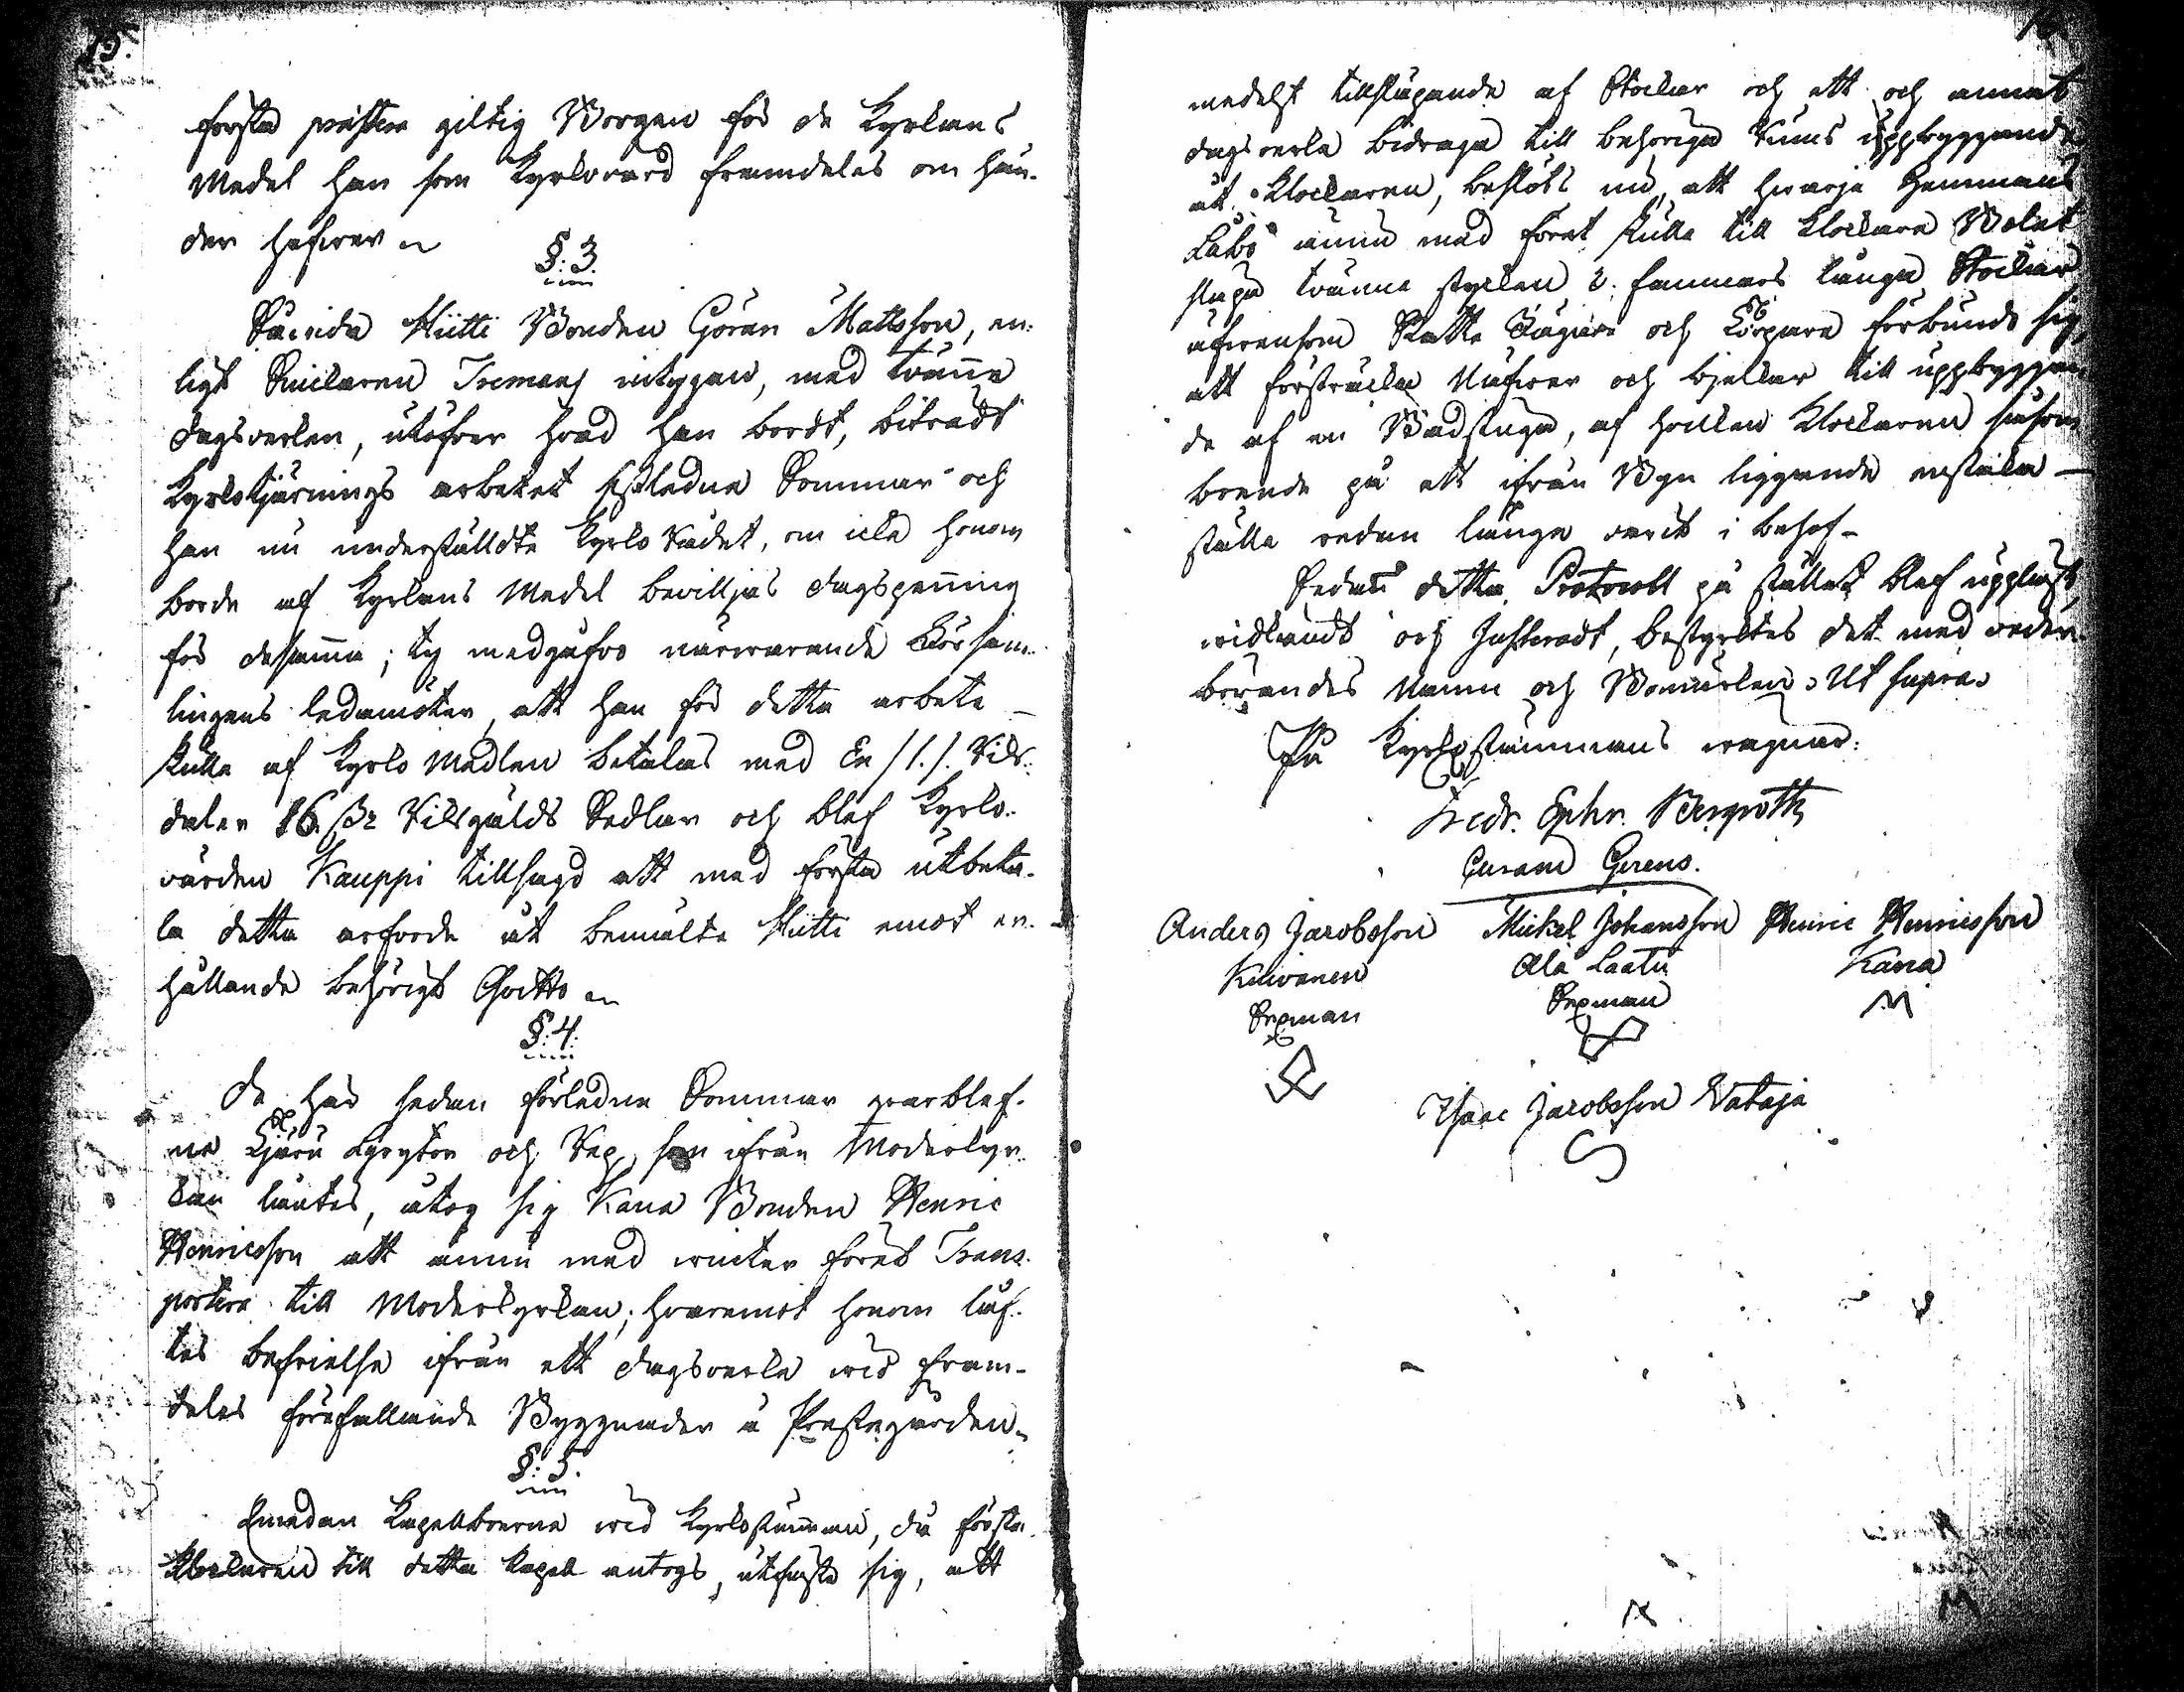 15.
första prästera giltig Borgen för de Kyrkans
Medel han som Kyrkovärd framdeles om hän-
der hafwer
§: 3.
Bonden Göran Mattsson, en-
ligt Snickaren intygan, med tvänne
dagsverken, utöfver hvad han bordt, biträdt
Kyrkotjärnings arbetet sistledne Sommar och
han nu underställdte KyrkoRådet, om icke honom
borde af Kyrkans Medel beviljas dagspenning
för desamma; ty medgåfvo närvarande Församm-
lingens ledamöter, att han för detta arbete
skulle af Kyrko Medlen betalas med En /1./. Riks-
daler 16 ßr Riksgälds Sedlar och blef Kyrko-
värden Kauppi tillsagd att med första utbeta-
la detta arfvode åt bemälte Hütti emot er-
hållande behörigt Qvitto
§: 4.
De här sedan förledne Sommar qvarblef-
ne Tjäru Grytor och Rep, som ifrån Moderkyr-
kan låntes, åtog sig Kana Bonden Henric
Henricsson att ännu med winter föret Trans-
portera till Moderkyrkan; hvaremot honom låf-
tes befrielse ifrån ett dagsverke wid fram-
deles förefallande Byggnader å Prestegården.
§: 5.
Emedan Kapellboerne wid Kyrkostämman, då första
Klockaren till detta Kapell antogs, utfäste sig, att
medelst tillsläpande af Stockar och ett och annat
dagsverke bidraga till behöriga Rums uppbyggande
åt Klockaren, beslöts nu, att hwarje Hemmans
Åbo ännu med föret skulle till Klockare Bolet
släpa tvänne stycken 3. famnars långa Stockar
äfwensom Skatte och Torpare förbundo sig,
att försträcka Näfwer och bjelkar till uppbyggan-
de af en Badstuga, af hvilken Klockaren såsom
boende på ett ifrån Byn liggande enstaka
ställe redan länge varit i behof-
Sedan detta Protocoll på stället blef uppläst,
widkändt och Justeradt, bestyrktes det med veder-
börandes Namn och Bomärken. Ut supra.
På Kyrkostämmans wägnar:
Fredr. Ephr. Bergroth
Curam Gerens.
Anders Jacobsson Mickel Johansson Henric Henricsson
Kiwonen Ala Laatu Kana
Sexman Sexman
Isaac Jacobsson Wataja